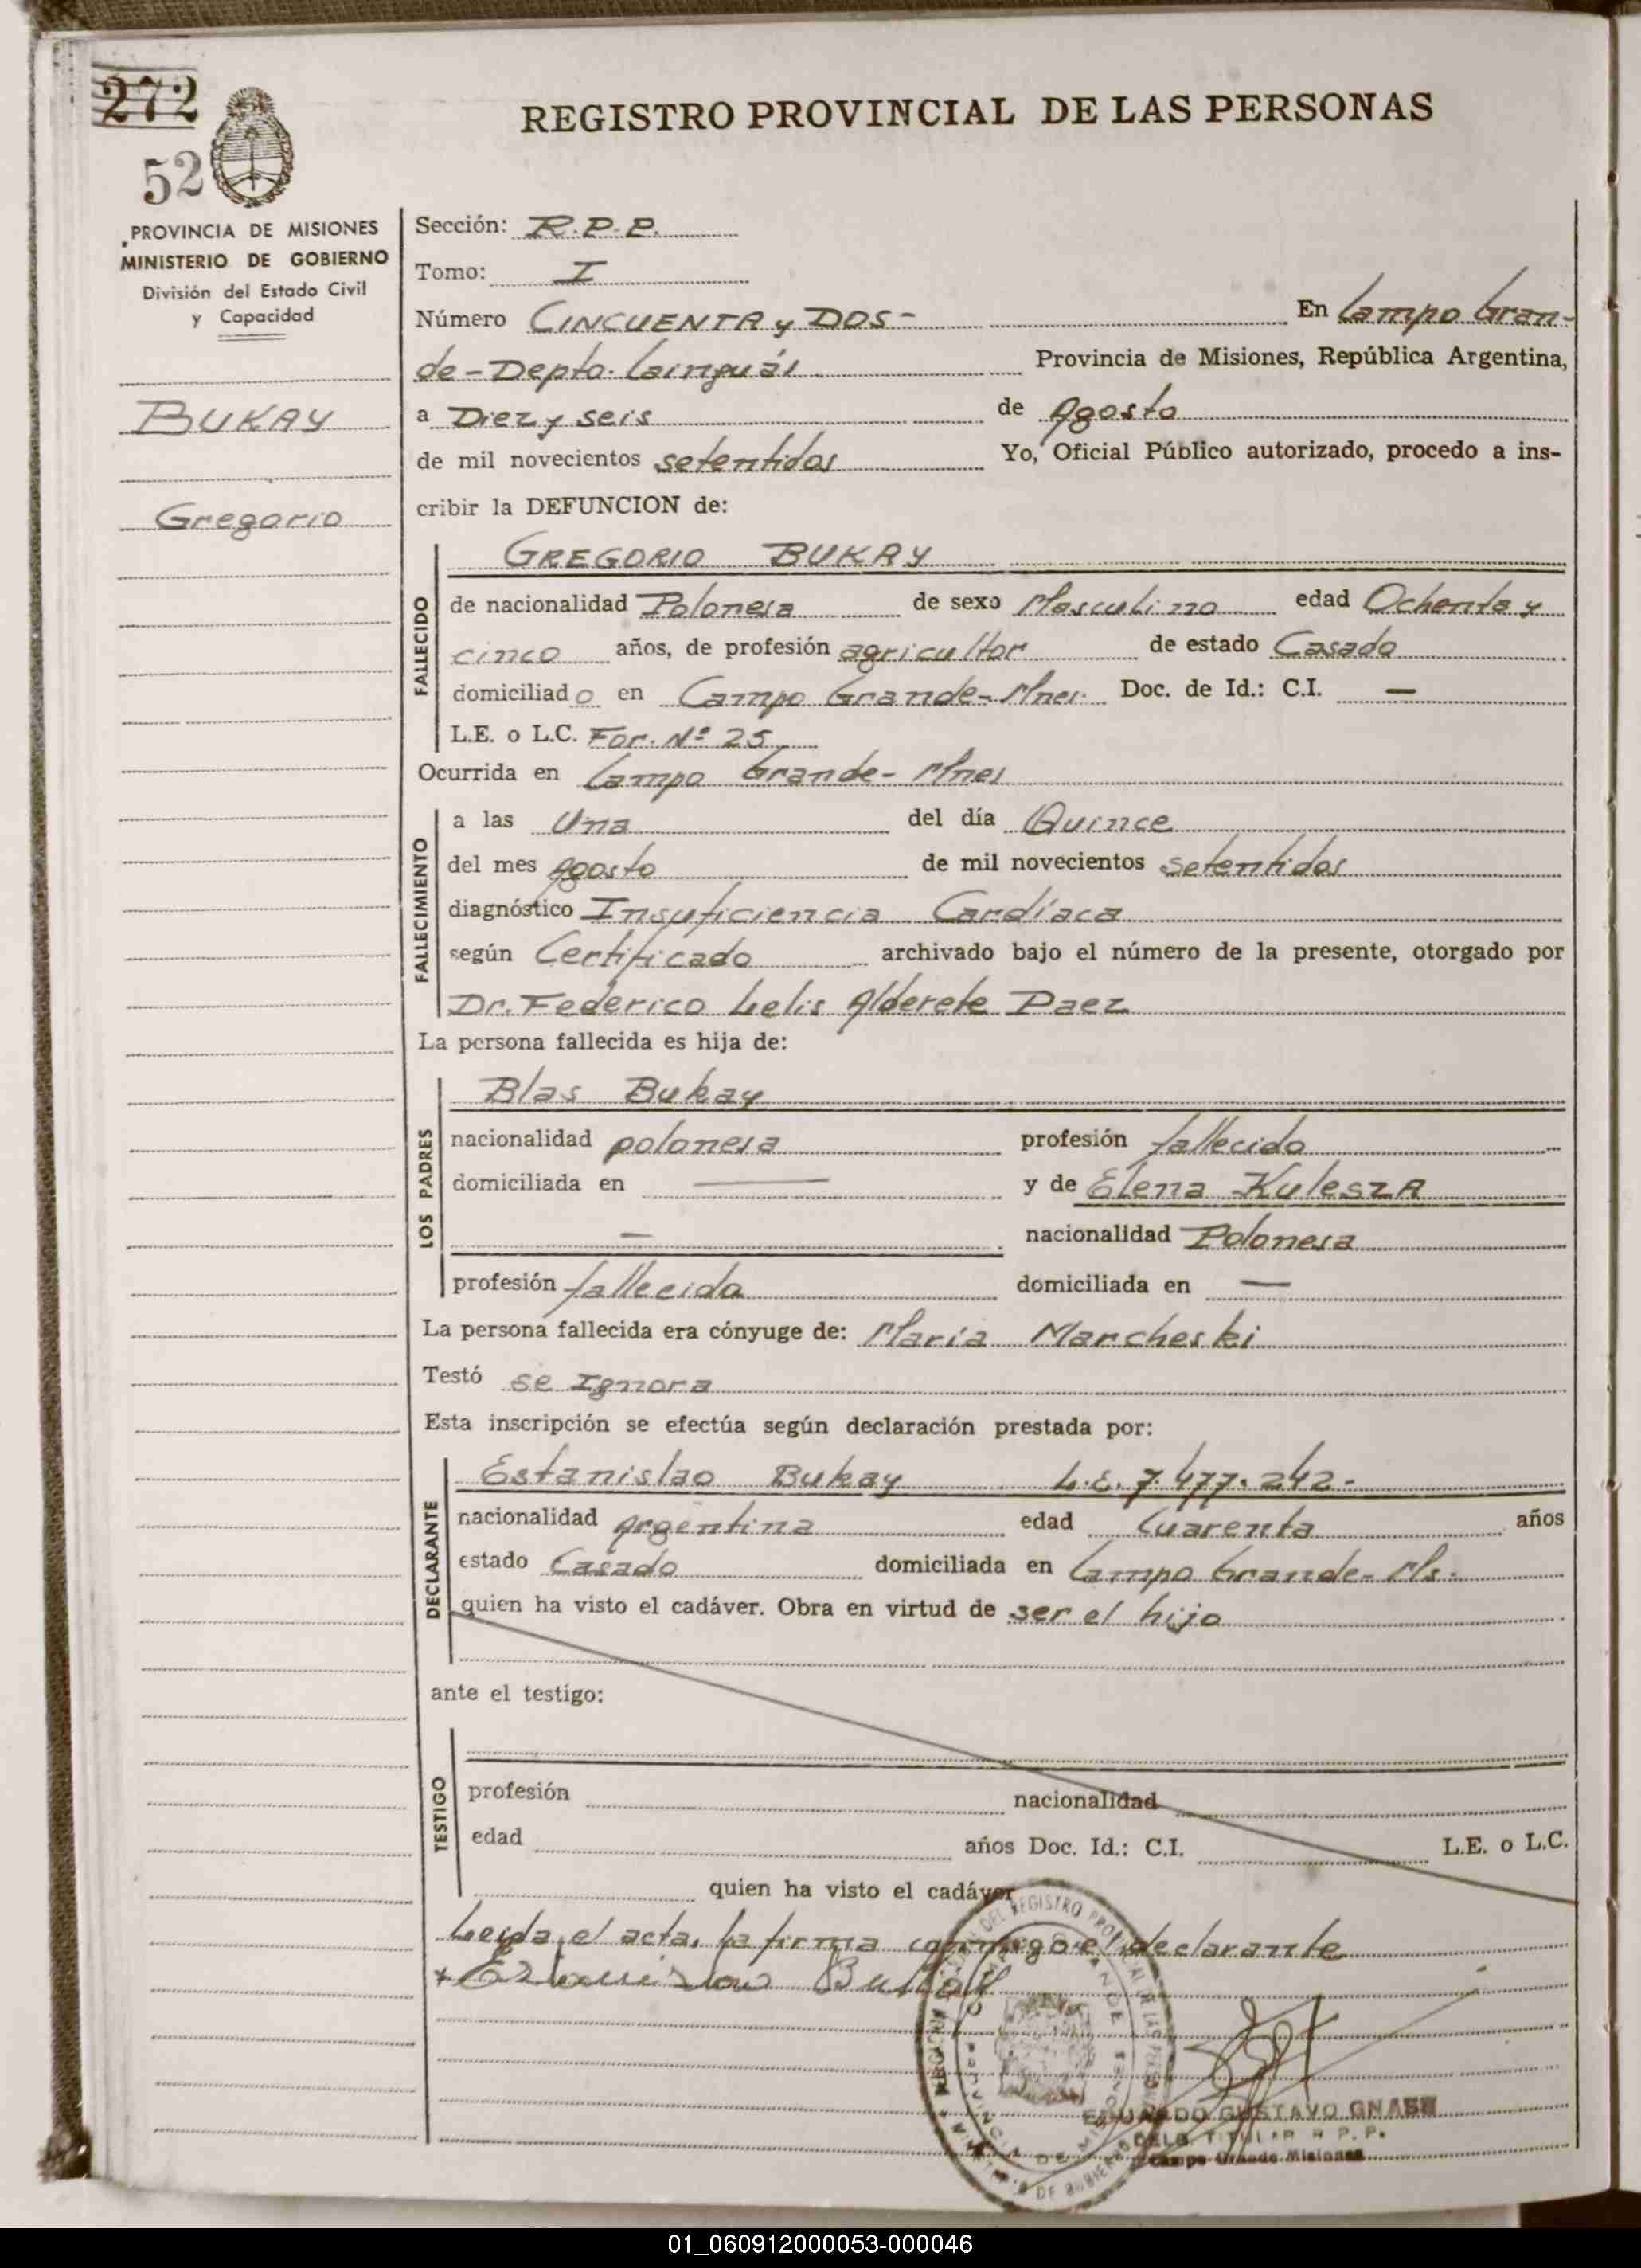 272
52
REGISTRO PROVINCIAL DE LAS PERSONAS
PROVINCIA DE MISIONES
MINISTERIO DE GOBIERNO
División del Estado Civil
y Capacidad
BUKAY
Gregorio
Sección: R.P.P.
Tomo: I
Número CINCUENTA y DOS- En Campo Gran-
de-Depto. Cainguás Provincia de Misiones, República Argentina,
a Diez y seis de Agosto
de mil novecientos setentidos Yo, Oficial Público autorizado, procedo a ins-
cribir la DEFUNCION de:
FALLECIDO
GREGORIO BUKAY
de nacionalidad Polonesa de sexo Masculino edad Ochenta y
cinco años, de profesión agricultor de estado Casado
domiciliado en Campo Grande-Mnes. Doc. de Id.: C.I. —
L.E. o L.C. For. Nº 25
Ocurrida en Campo Grande- Mnes
FALLECIMIENTO
a las Una del día Quince
del mes Agosto de mil novecientos setentidos
diagnóstico Insuficiencia Cardíaca
según Certificado archivado bajo el número de la presente, otorgado por
Dr. Federico Lelis Alderete Paez
La persona fallecida es hija de:
LOS PADRES
Blas Bukay
nacionalidad polonesa profesión fallecido
domiciliada en — y de Elena Kulesza
— nacionalidad Polonesa
profesión fallecida domiciliada en —
La persona fallecida era cónyuge de: María Marcheski
Testó se Ignora
Esta inscripción se efectúa según declaración prestada por:
DECLARANTE
Estanislao Bukay L.E. 7.477.242-
nacionalidad Argentina edad Cuarenta años
estado Casado domiciliada en Campo Grande- Ms.
quien ha visto el cadáver. Obra en virtud de ser el hijo
ante el testigo:
TESTIGO
profesión nacionalidad
edad años Doc. Id.: C.I. L.E. o L.C.
quien ha visto el cadáver
Leida el acta, la firma conmigo el declarante
+ Estanislao Bukay
EDUARDO GUSTAVO GNASS
DELG. TITULAR R.P.P.
Campo Grande Misiones
01_060912000053-000046